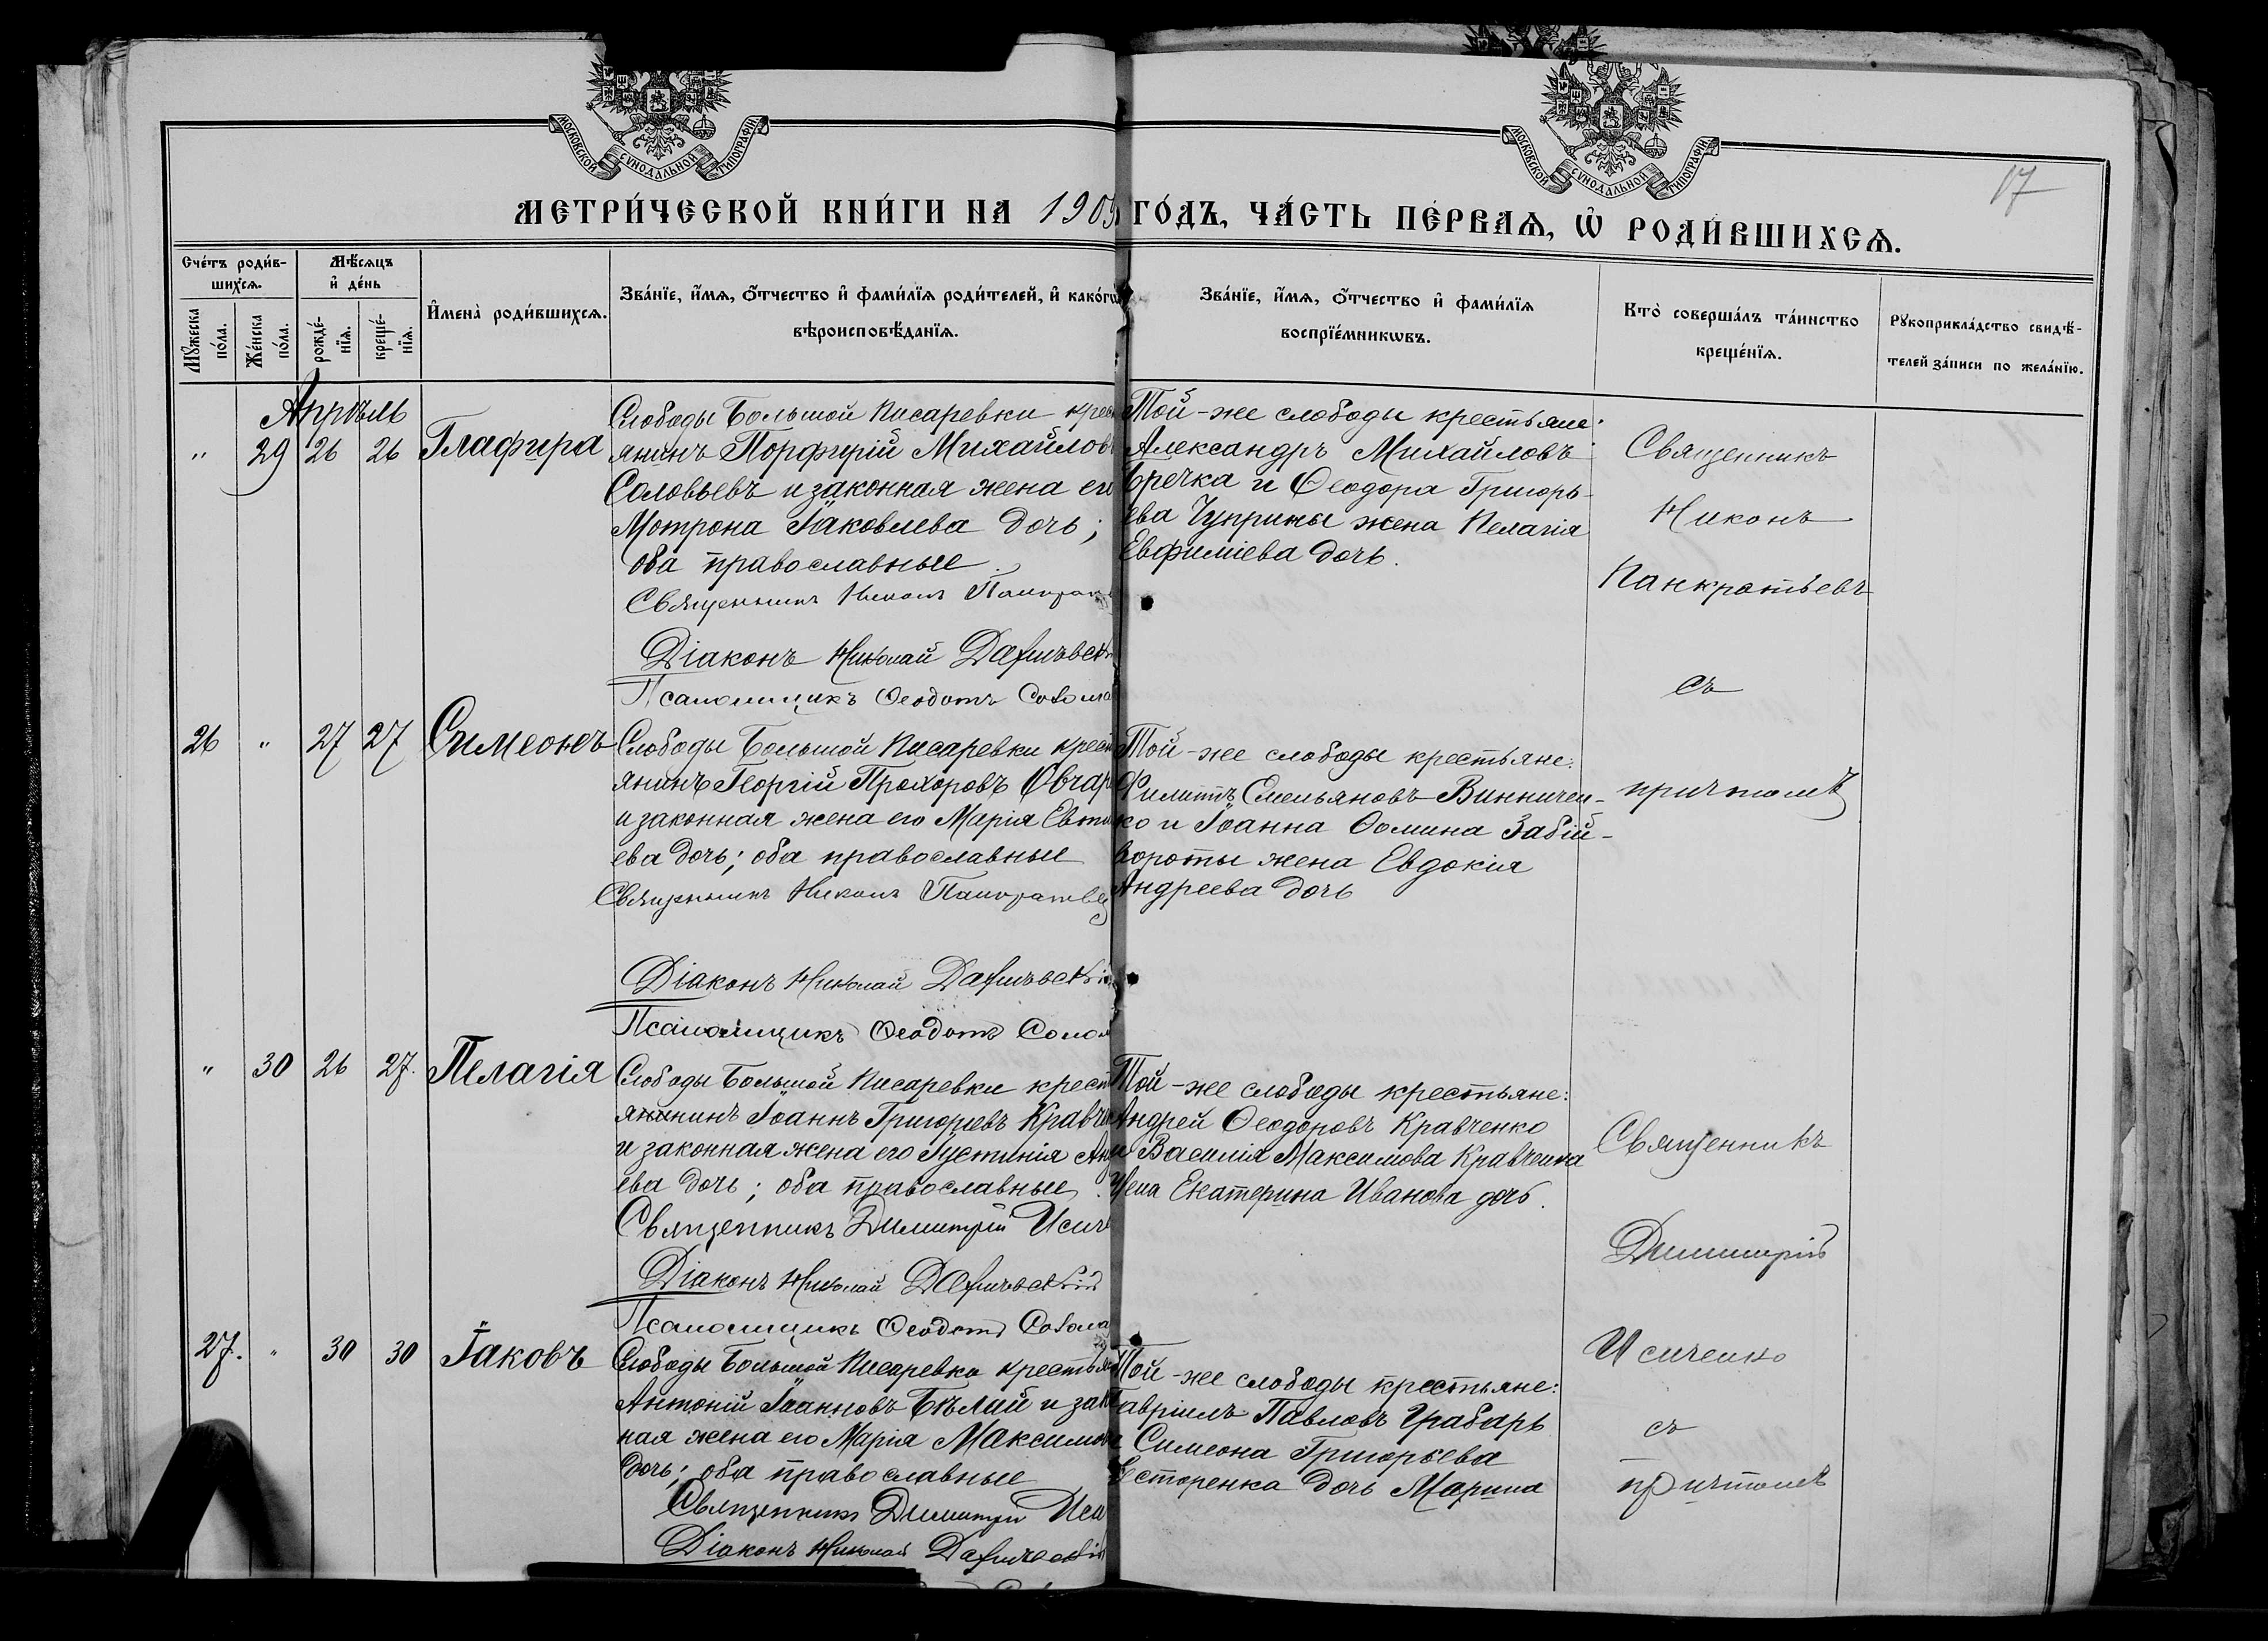 МОСКОВСКОЙ СѴНОДАЛЬНОЙ ТИПОГРАФІИ
МОСКОВСКОЙ СѴНОДАЛЬНОЙ ТИПОГРАФІИ
17
МЕТРИ́ЧЕСКОЙ КНИ́ГИ НА 1909 ГО́ДЪ, ЧА́СТЬ ПЕ́РВАѦ, Ѡ҆ РОДИ́ВШИХСѦ.
Сче́тъ роди́в-
шихсѧ.
Мꙋ́жеска по́ла.
Же́нска по́ла.
Мѣ́сѧцъ
и҆ де́нь
рожде́-
нїѧ.
креще́-
нїѧ.
И҆мена̀ роди́вшихсѧ.
Зва́нїе, и҆́мѧ, ѻ҆́тчество и҆ фами́лїѧ роди́телей, и҆ како́гѡ
вѣроисповѣ́данїѧ.
Зва́нїе, и҆́мѧ, ѻ҆́тчество и҆ фами́лїѧ
воспрїе́мникѡвъ.
Кто̀ соверша́лъ та́инство
креще́нїѧ.
Рꙋкоприкла́дство свидѣ́-
телей за́писи по жела́нїю.
Апрѣль
" 29 26 26 Глафира
Слободы Большой Писаревки крес
янинъ Порфирій Михайлов
Соловьевъ и законная жена его
Мотрона Іаковлева дочь;
оба православные.
Священникъ Никонъ Панкрат
Діаконъ Николай
Псаломщикъ Ѳеодотъ
Той-же слободы крестьяне:
Александръ Михайловъ
Гречка и Ѳеодора Григорь-
ева Чуприны жена Пелагія
Евфиміева дочь.
Священникъ
Никонъ
Панкратьевъ
съ
причтомъ
26 " 27 27 Симеонъ
Слободы Большой Писаревки крест
янинъ Георгій Прохоровъ Овчар
и законная жена его Марія Евти
ева дочь; оба православные
Священникъ Никонъ Панкратьев
Діаконъ Николай
Псаломщикъ Ѳеодотъ
Той-же слободы крестьяне:
Филиппъ Емельяновъ Винничен-
ко и Іоанна Ѳомина Забій-
вороты жена Евдокія
Андреева дочь
" 30 26 27. Пелагія
Слободы Большой Писаревки крест
янинъ Іоаннъ Григорьевъ Кравчен
и законная жена его Іустинія Ан
ева дочь; оба православные.
Священникъ Димитрій Исич
Діаконъ Николай
Псаломщикъ Ѳеодотъ
Той-же слободы крестьяне:
Андрей Ѳеодоровъ Кравченко
и Василія Максимова Кравченка
жена Екатерина Иванова дочь.
Священникъ
Димитрій
Исиченко
съ
причтомъ
27. " 30 30 Іаковъ
Слободы Большой Писаревки крестьян
Антоній Іоанновъ Бѣлый и зако
ная жена его Марія Максимова
дочь; оба православные
Священникъ Димитрій Иси
Діаконъ Николай
Той-же слободы крестьяне:
Гавріилъ Павловъ Грабарь
Симеона Григорьева
Несторенка дочь Марина